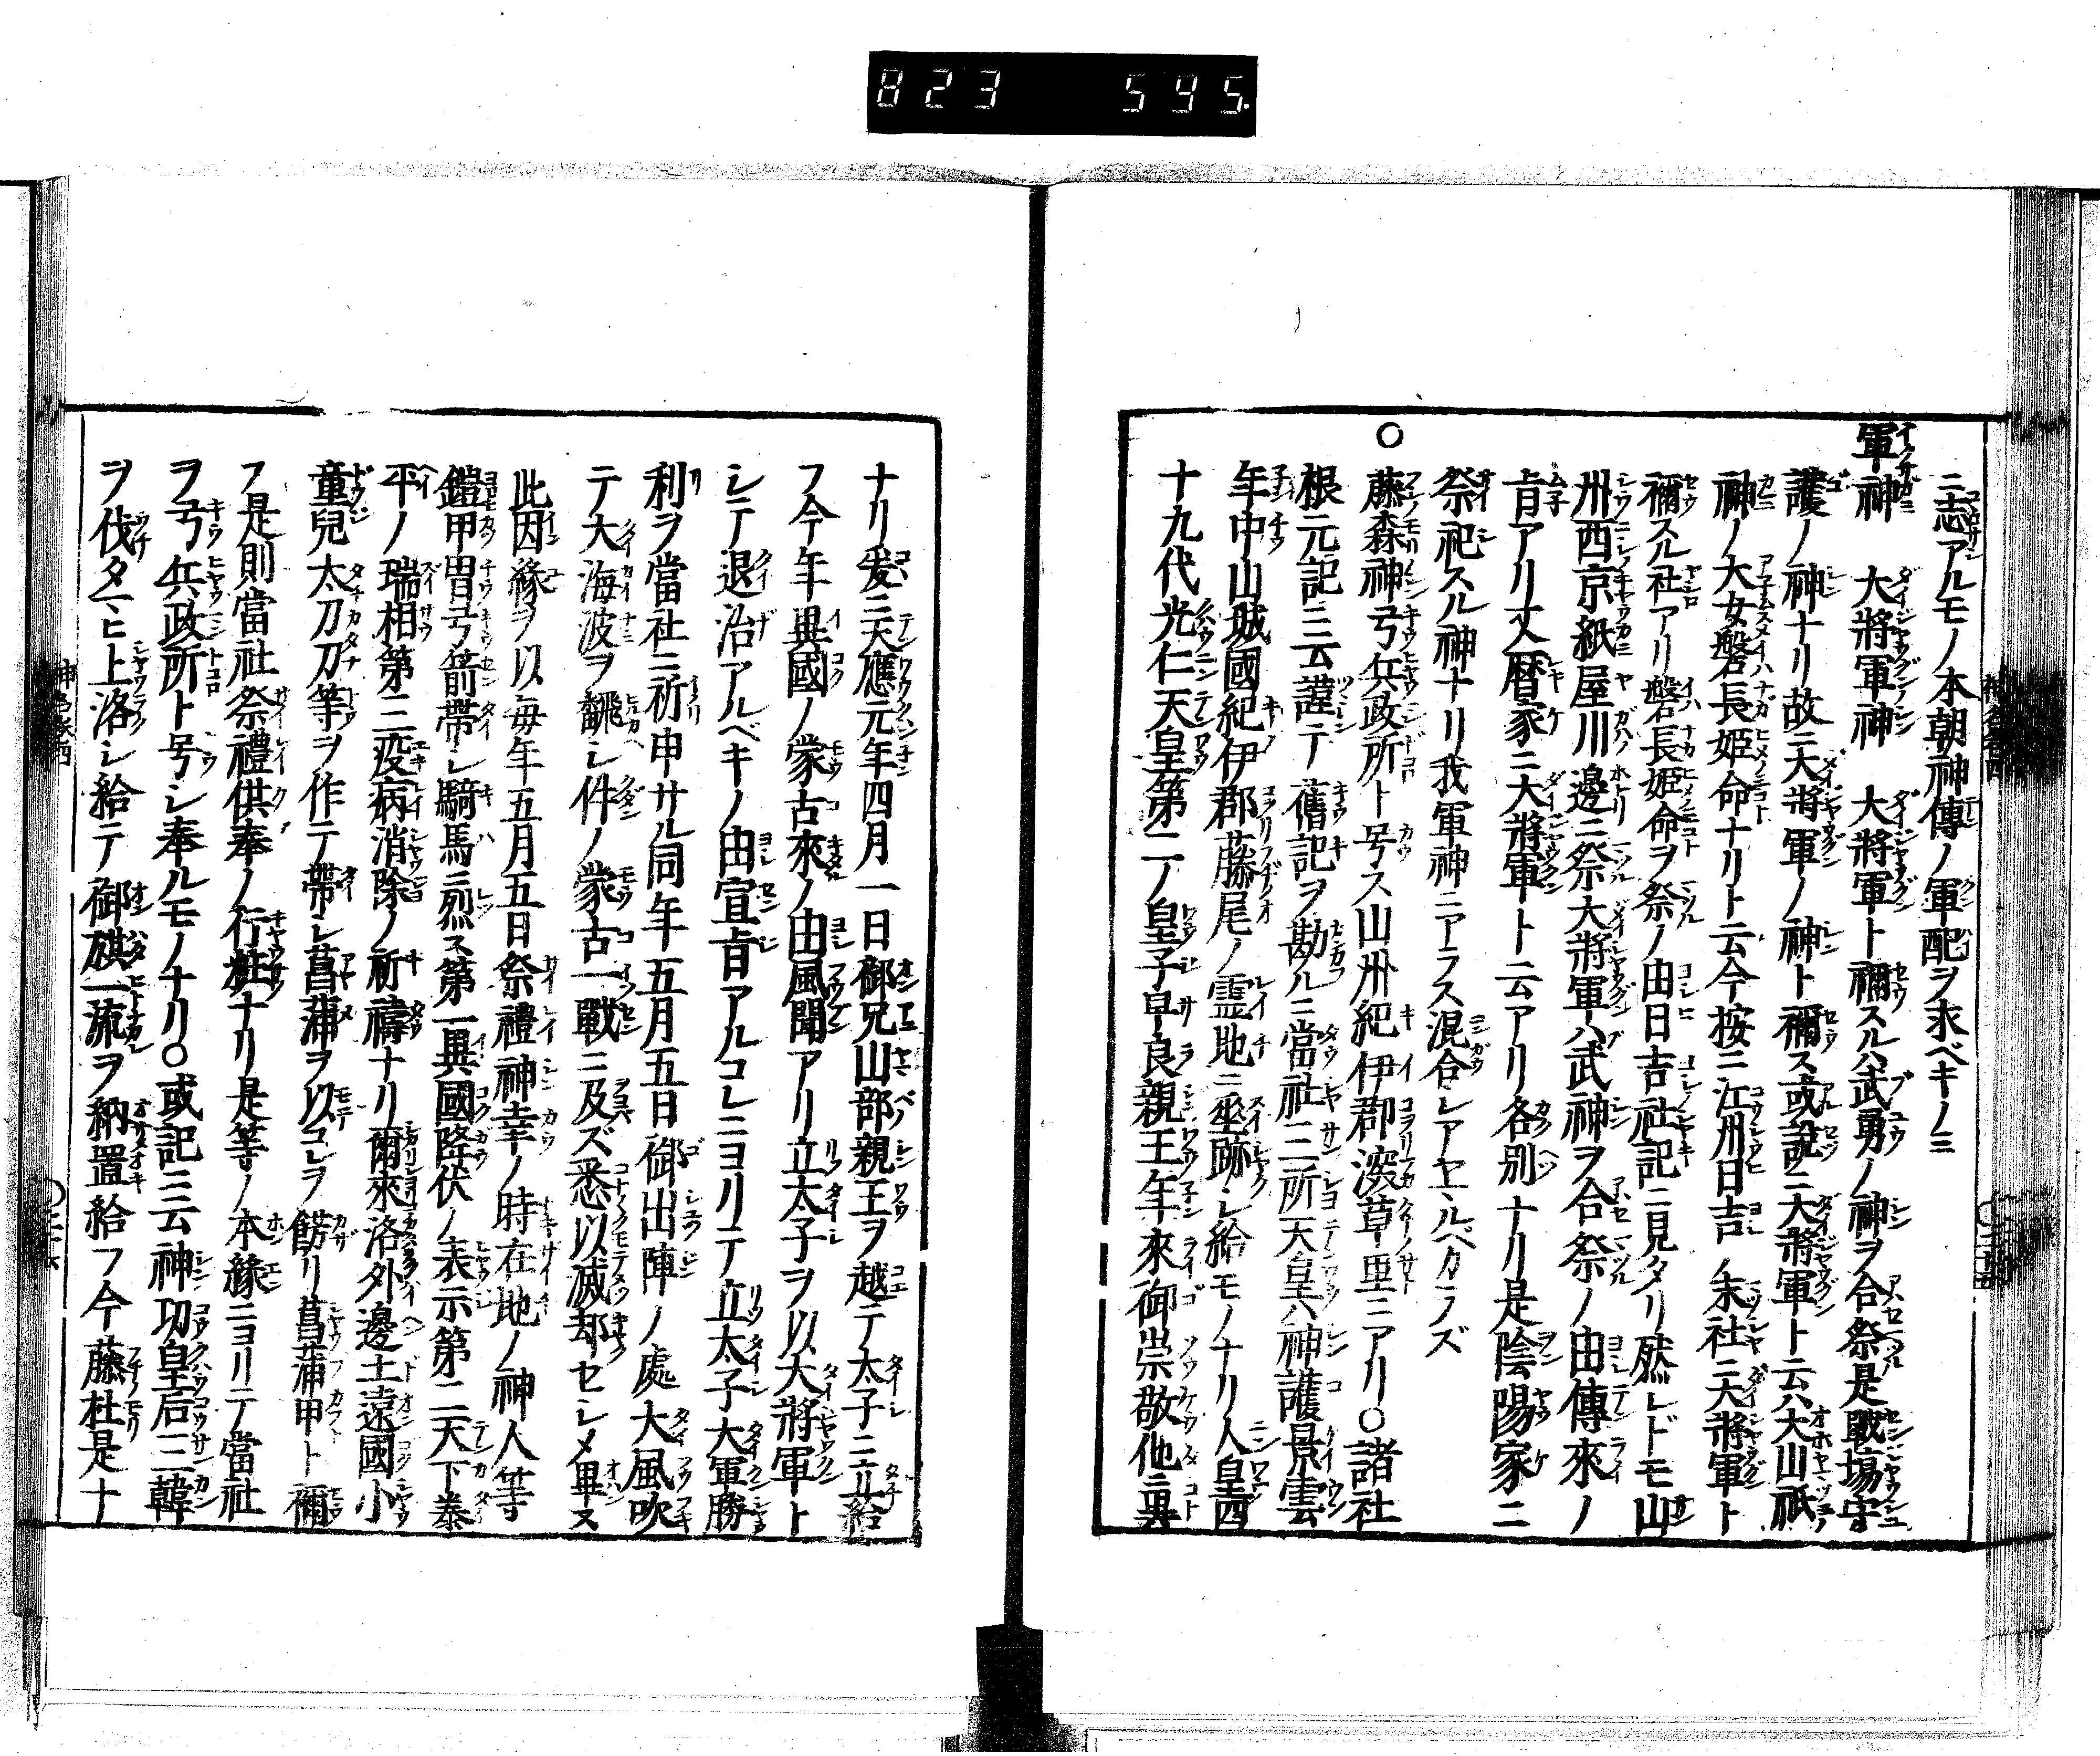 823 595.
ニ志アルモノ本朝神傳ノ軍配ヲ求ベキノミ
軍神 大將軍神 大將軍ト稱スルハ武勇ノ神ヲ合祭是戰塲守
護ノ神ナリ故ニ大將軍ノ神ト稱ス或說ニ大將軍ト云ハ大山祇
神ノ大女磐長姫命ナリト云今按ニ江州日吉ノ末社ニ大將軍ト
稱スル社アリ磐長姫命ヲ祭ノ由日吉社記ニ見タリ然レドモ山
州西京紙屋川邊ニ祭大將軍ハ武神ヲ合祭ノ由傳來ノ
旨アリ丈暦家ニ大將軍ト云アリ各別ナリ是陰陽家ニ
祭祀スル神ナリ我軍神ニアラス混合レアヤマルベカラズ
○藤森神弓兵政所ト号ス山州紀伊郡深草里ニアリ○諸社
根元記ニ云謹テ舊記ヲ勘ルニ當社三所天皇ハ神護景雲
年中山城國紀伊郡藤尾ノ霊地ニ垂跡レ給モノナリ人皇四
十九代光仁天皇第二ノ皇子早良親王年來御崇敬他ニ異
ナリ爰ニ天應元年四月一日御兄山部親王ヲ越テ太子ニ立給
フ今年異國ノ蒙古來ノ由風聞アリ立太子ヲ以大將軍ト
シテ退治アルベキノ由宣旨アルコレニヨリテ立太子大軍勝
利ヲ當社ニ祈申サル同年五月五日御出陣ノ處大風吹
テ大海波ヲ飜シ件ノ蒙古一戰ニ及ズ悉以滅却セシメ畢ヌ
此因縁ヲ以毎年五月五日祭禮神幸ノ時在地ノ神人等
鎧甲冑弓箭帶シ騎馬烈ス第一異國降伏ノ表示第二天下泰
平ノ瑞相第三疫病消除ノ祈禱ナリ爾來洛外邊土遠國小
童兒太刀刀等ヲ作テ帶シ菖蒲ヲ以コレヲ餝リ菖蒲甲ト稱
フ是則當社祭禮供奉ノ行粧ナリ是等ノ本縁ニヨリテ當社
ヲ弓兵政所ト号シ奉ルモノナリ○或記ニ云神功皇后三韓
ヲ伐タマヒ上洛シ給テ御旗一流ヲ納置給フ今藤杜是ナ